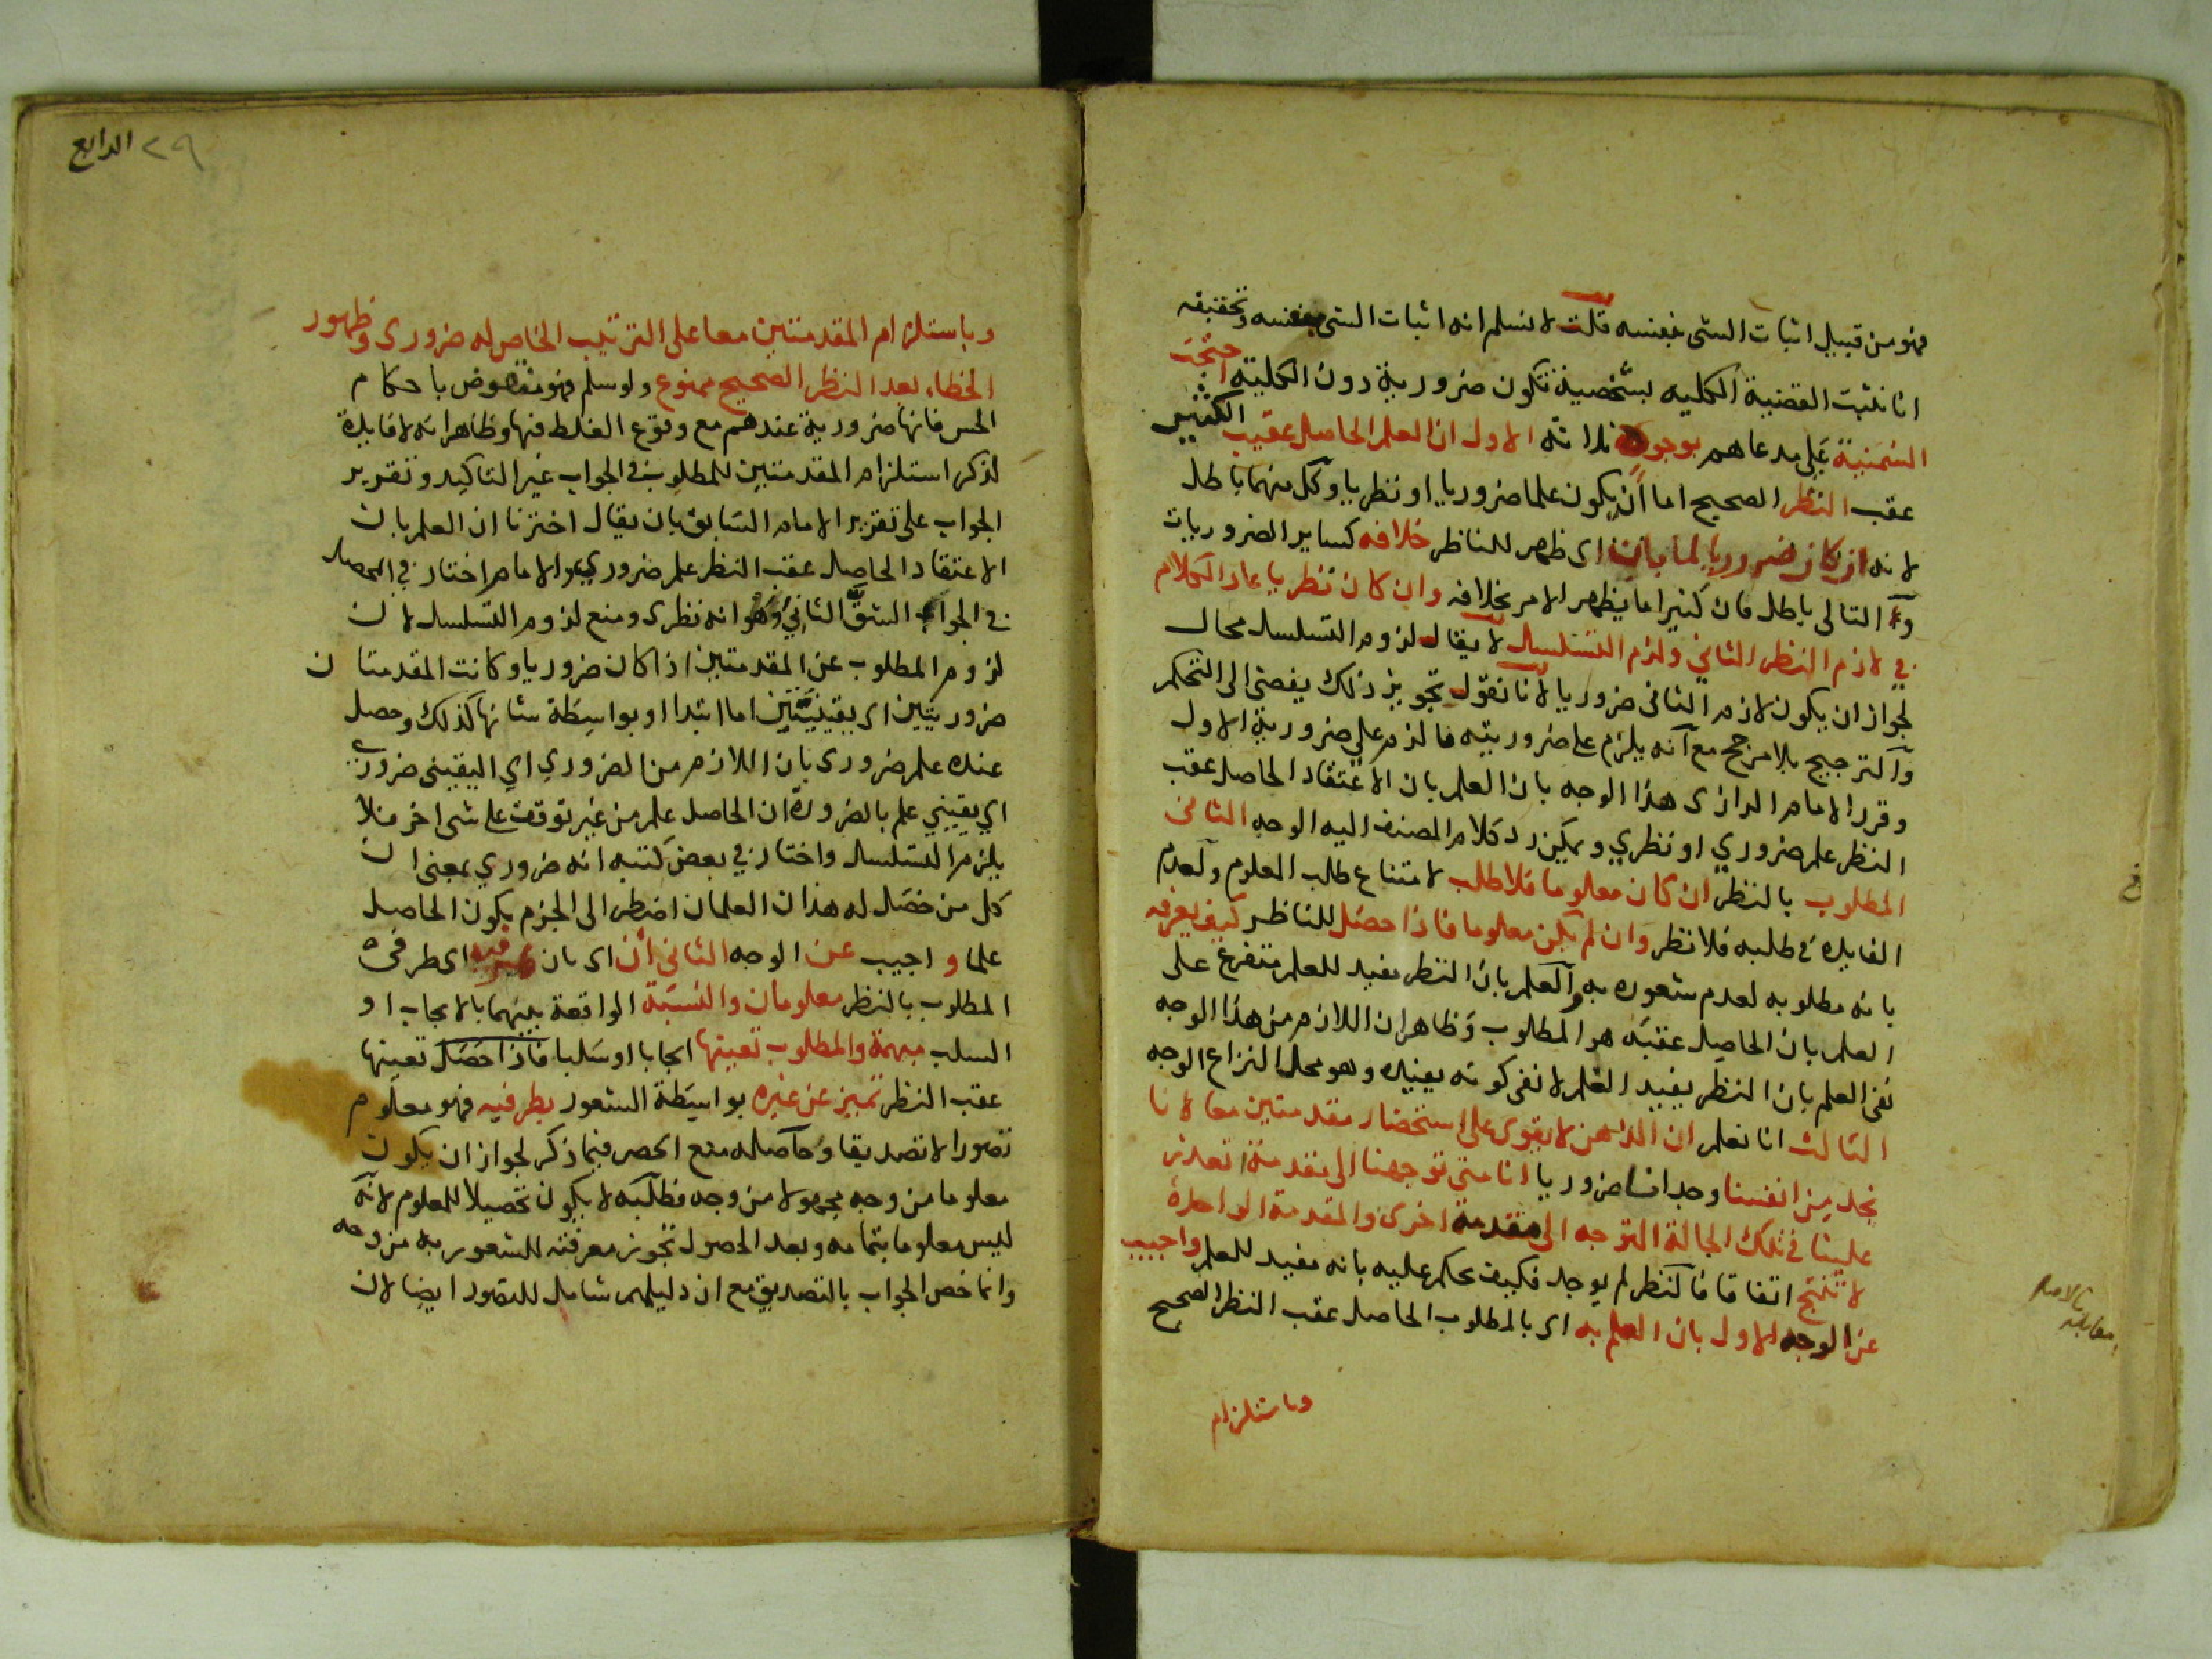 فهو من قبيل اثبات الشى بنفسه قلت لا نسلم انه اثبات الشى بنفسه وتحقيقه
انا نثبت القضية الكلية بشخصية تكون ضرورية دون الكلية احتجت
السمنية على مدعاهم بوجوه ثلاثة الاول ان العلم الحاصل عقيب
عقب النظر الصحيح اما ان يكون علما ضروريا او نظريا وكل منهما باطل
لانه ان كان ضروريا لما بان اى ظهر للناظر خلافه كساير الضروريات
والتالى باطل فان كثيرا ما يظهر الامر بخلافه وان كان نظريا عاد الكلام
في لازم النظر الثاني ولزم التسلسل لا يقال لزوم التسلسل محال
لجواز ان يكون لازم الثانى ضروريا لانا نقول تجويز ذلك يفضى الى التحكم
والترجيح بلا مرجح مع انه يلزم على ضروريته ما لزم على ضرورية الاول
وقرر الامام الرازى هذا الوجه بان العلم بان الاعتقاد الحاصل عقب
النظر علم ضروري او نظري ويمكن رد كلام المصنف اليه الوجه الثانى
المطلوب بالنظر ان كان معلوما فلا طلب لامتناع طلب المعلوم ولعدم
الفايدة فى طلبه فلا نظر وان لم يكن معلوما فاذا حصل للناظر كيف يعرفه
بانه مطلوبه لعدم شعوره به والعلم بان النظر مفيد للعلم متفرع على
العلم بان الحاصل عقبه هو المطلوب وظاهر ان اللازم من هذا الوجه
نفى العلم بان النظر يفيد العلم لا نفى كونه يفيده وهو محل النزاع الوجه
الثالث انا نعلم ان الذهن لا يقوى على استحضار مقدمتين معا لانا
نجد من انفسنا وجدانا ضروريا انا متى توجهنا الى مقدمة تعذر
علينا فى تلك الحالة التوجه الى مقدمة اخرى والمقدمة الواحدة
لا تنتج اتفاقا فالنظر لم يوجد فكيف يحكم عليه بانه مفيد للعلم واجيب
عن الوجه الاول بان العلم به اى بالمطلوب الحاصل عقب النظر الصحيح
وباستلزام
الكثير
مقابلة بالاصل
٢٩ الرابع
وباستلزام المقدمتين معا على الترتيب الخاص له ضرورى وظهور
الخطاء بعد النظر الصحيح ممنوع ولو سلم فهو منقوض باحكام
الحس فانها ضرورية عندهم مع وقوع الغلط فيها وظاهر انه لا فايدة
لذكر استلزام المقدمتين للمطلوب فى الجواب غير التاكيد وتقرير
الجواب على تقرير الامام السابق بان يقال اخترنا ان العلم بان
الاعتقاد الحاصل عقب النظر علم ضروري والامام اختار في المحصل
في الجواب الشق الثاني وهو انه نظرى ومنع لزوم التسلسل لان
لزوم المطلوب عن المقدمتين اذا كان ضروريا وكانت المقدمتان
ضروريتين اى يقينيتين اما ابتدا او بواسطة شانها كذلك وحصل
عنده علم ضرورى بان اللازم من الضروري اي اليقينى ضروري
اي يقيني علم بالضرورة ان الحاصل علم من غير توقف على شى اخر فلا
يلزم التسلسل واختار في بعض كتبه انه ضروري بمعنى ان
كل من حصل له هذان العلمان اضطر الى الجزم بكون الحاصل
علما واجيب عن الوجه الثانى ان اى بان طرفيه اى طرفى
المطلوب بالنظر معلومان والنسبة الواقعة بينهما بالايجاب او
السلب مبهمة والمطلوب تعينها ايجابا او سلبا فاذا حصل تعينها
عقب النظر تميز عن غيره بواسطة الشعور بطرفيه فهو معلوم
تصورا لا تصديقا وحاصله منع الحصر فيما ذكر لجواز ان يكون
معلوما من وجه مجهولا من وجه فطلبه لا يكون تحصيلا للمعلوم لانه
ليس معلوما بتمامه وبعد الحصول تجوز معرفته للشعور به من وجه
وانما خص الجواب بالتصديق مع ان دليلهم شامل للتصور ايضا لان